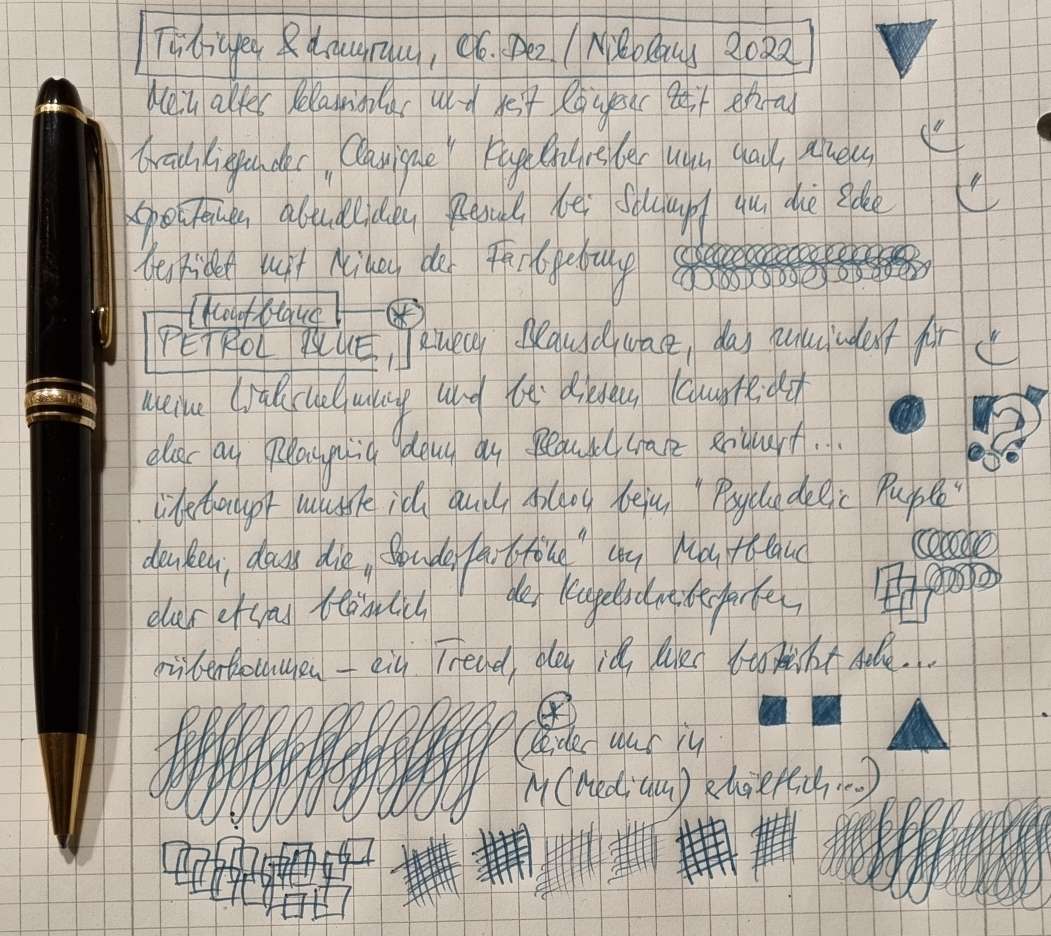 Tübingen &, 06. Dez. / Nikolaus 2022
Mein alter klassischer und seit längerer Zeit etwas
brachliegender „Classique“ Kugelschreiber nun nach einem
spontanen abendlichen Besuch bei Schimpf um die Ecke
bestückt mit Minen der Farbgebung
Montblanc
PETROL BLUE, einem Blauschwarz, das zumindest für
meine Wahrnehmung und bei diesem Kunstlicht
eher an Blaugrün denn an Blauschwarz erinnert...
überhaupt musste ich auch schon beim "Psychedelic Purple"
denken, dass die „Sonderfarbtöne“ von Montblanc
eher etwas blässlich der Kugelschreiberfarben
rüberkommen – ein Trend, den ich hier bestärkt sehe...
(leider nur in
M (Medium) erhältlich....)